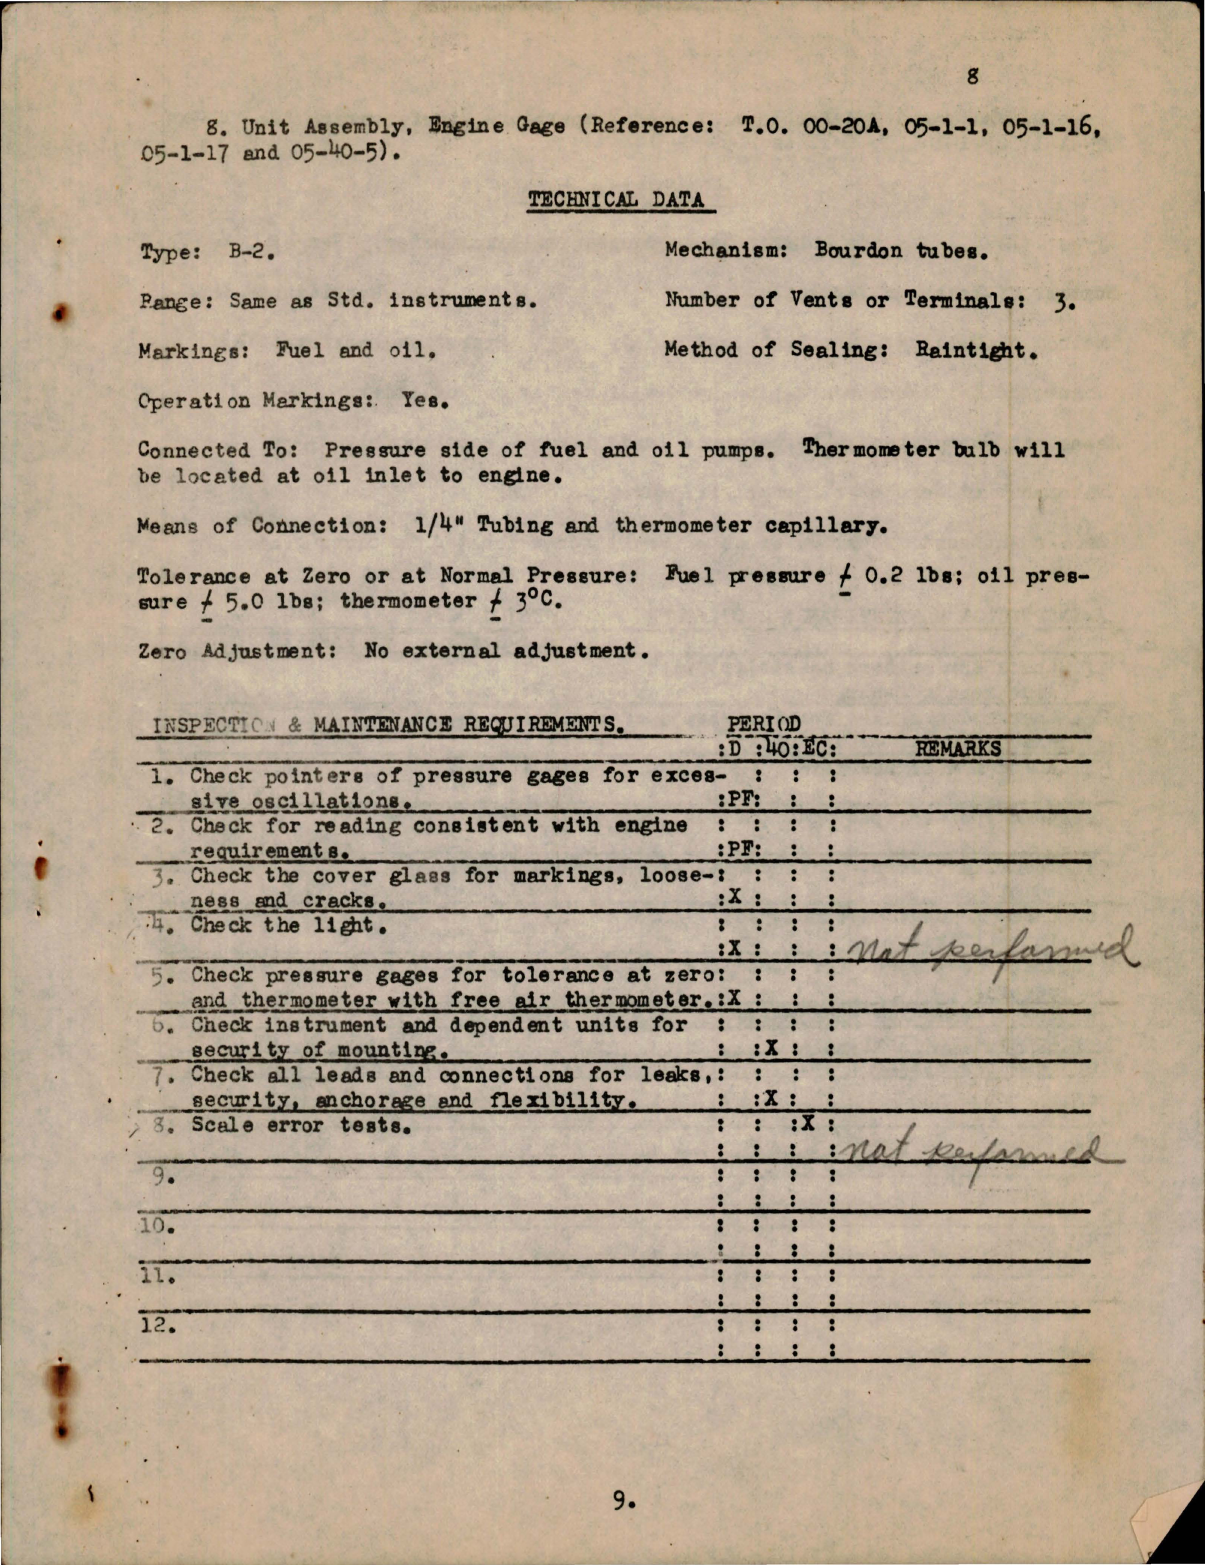 8
8. Unit Assembly, Engine Gage (Reference: T.O. 00-20A, 05-1-1, 05-1-16,
05-1-17 and 05-40-5).
TECHNICAL DATA
Type: B-2. Mechanism: Bourdon tubes.
Range: Same as Std. instruments. Number of Vents or Terminals: 3.
Markings: Fuel and oil. Method of Sealing: Raintight.
Operation Markings: Yes.
Connected To: Pressure side of fuel and oil pumps. Thermometer bulb will
be located at oil inlet to engine.
Means of Connection: 1/4" Tubing and thermometer capillary.
Tolerance at Zero or at Normal Pressure: Fuel pressure ± 0.2 lbs; oil pres-
sure ± 5.0 lbs; thermometer ± 3°C.
Zero Adjustment: No external adjustment.
INSPECTION & MAINTENANCE REQUIREMENTS. PERIOD
:D :40:EC: REMARKS
1. Check pointers of pressure gages for exces- : : :
sive oscillations. :PF: : :
2. Check for reading consistent with engine : : : :
requirements. :PF: : :
3. Check the cover glass for markings, loose-: : : :
ness and cracks. :X : : :
4. Check the light. : : : :
:X : : : Not performed
5. Check pressure gages for tolerance at zero: : : :
and thermometer with free air thermometer.:X : : :
6. Check instrument and dependent units for : : : :
security of mounting. : :X : :
7. Check all leads and connections for leaks,: : : :
security, anchorage and flexibility. : :X : :
8. Scale error tests. : : :X :
: : : : not performed
9. : : : :
: : : :
10. : : : :
: : : :
11. : : : :
: : : :
12. : : : :
: : : :
9.